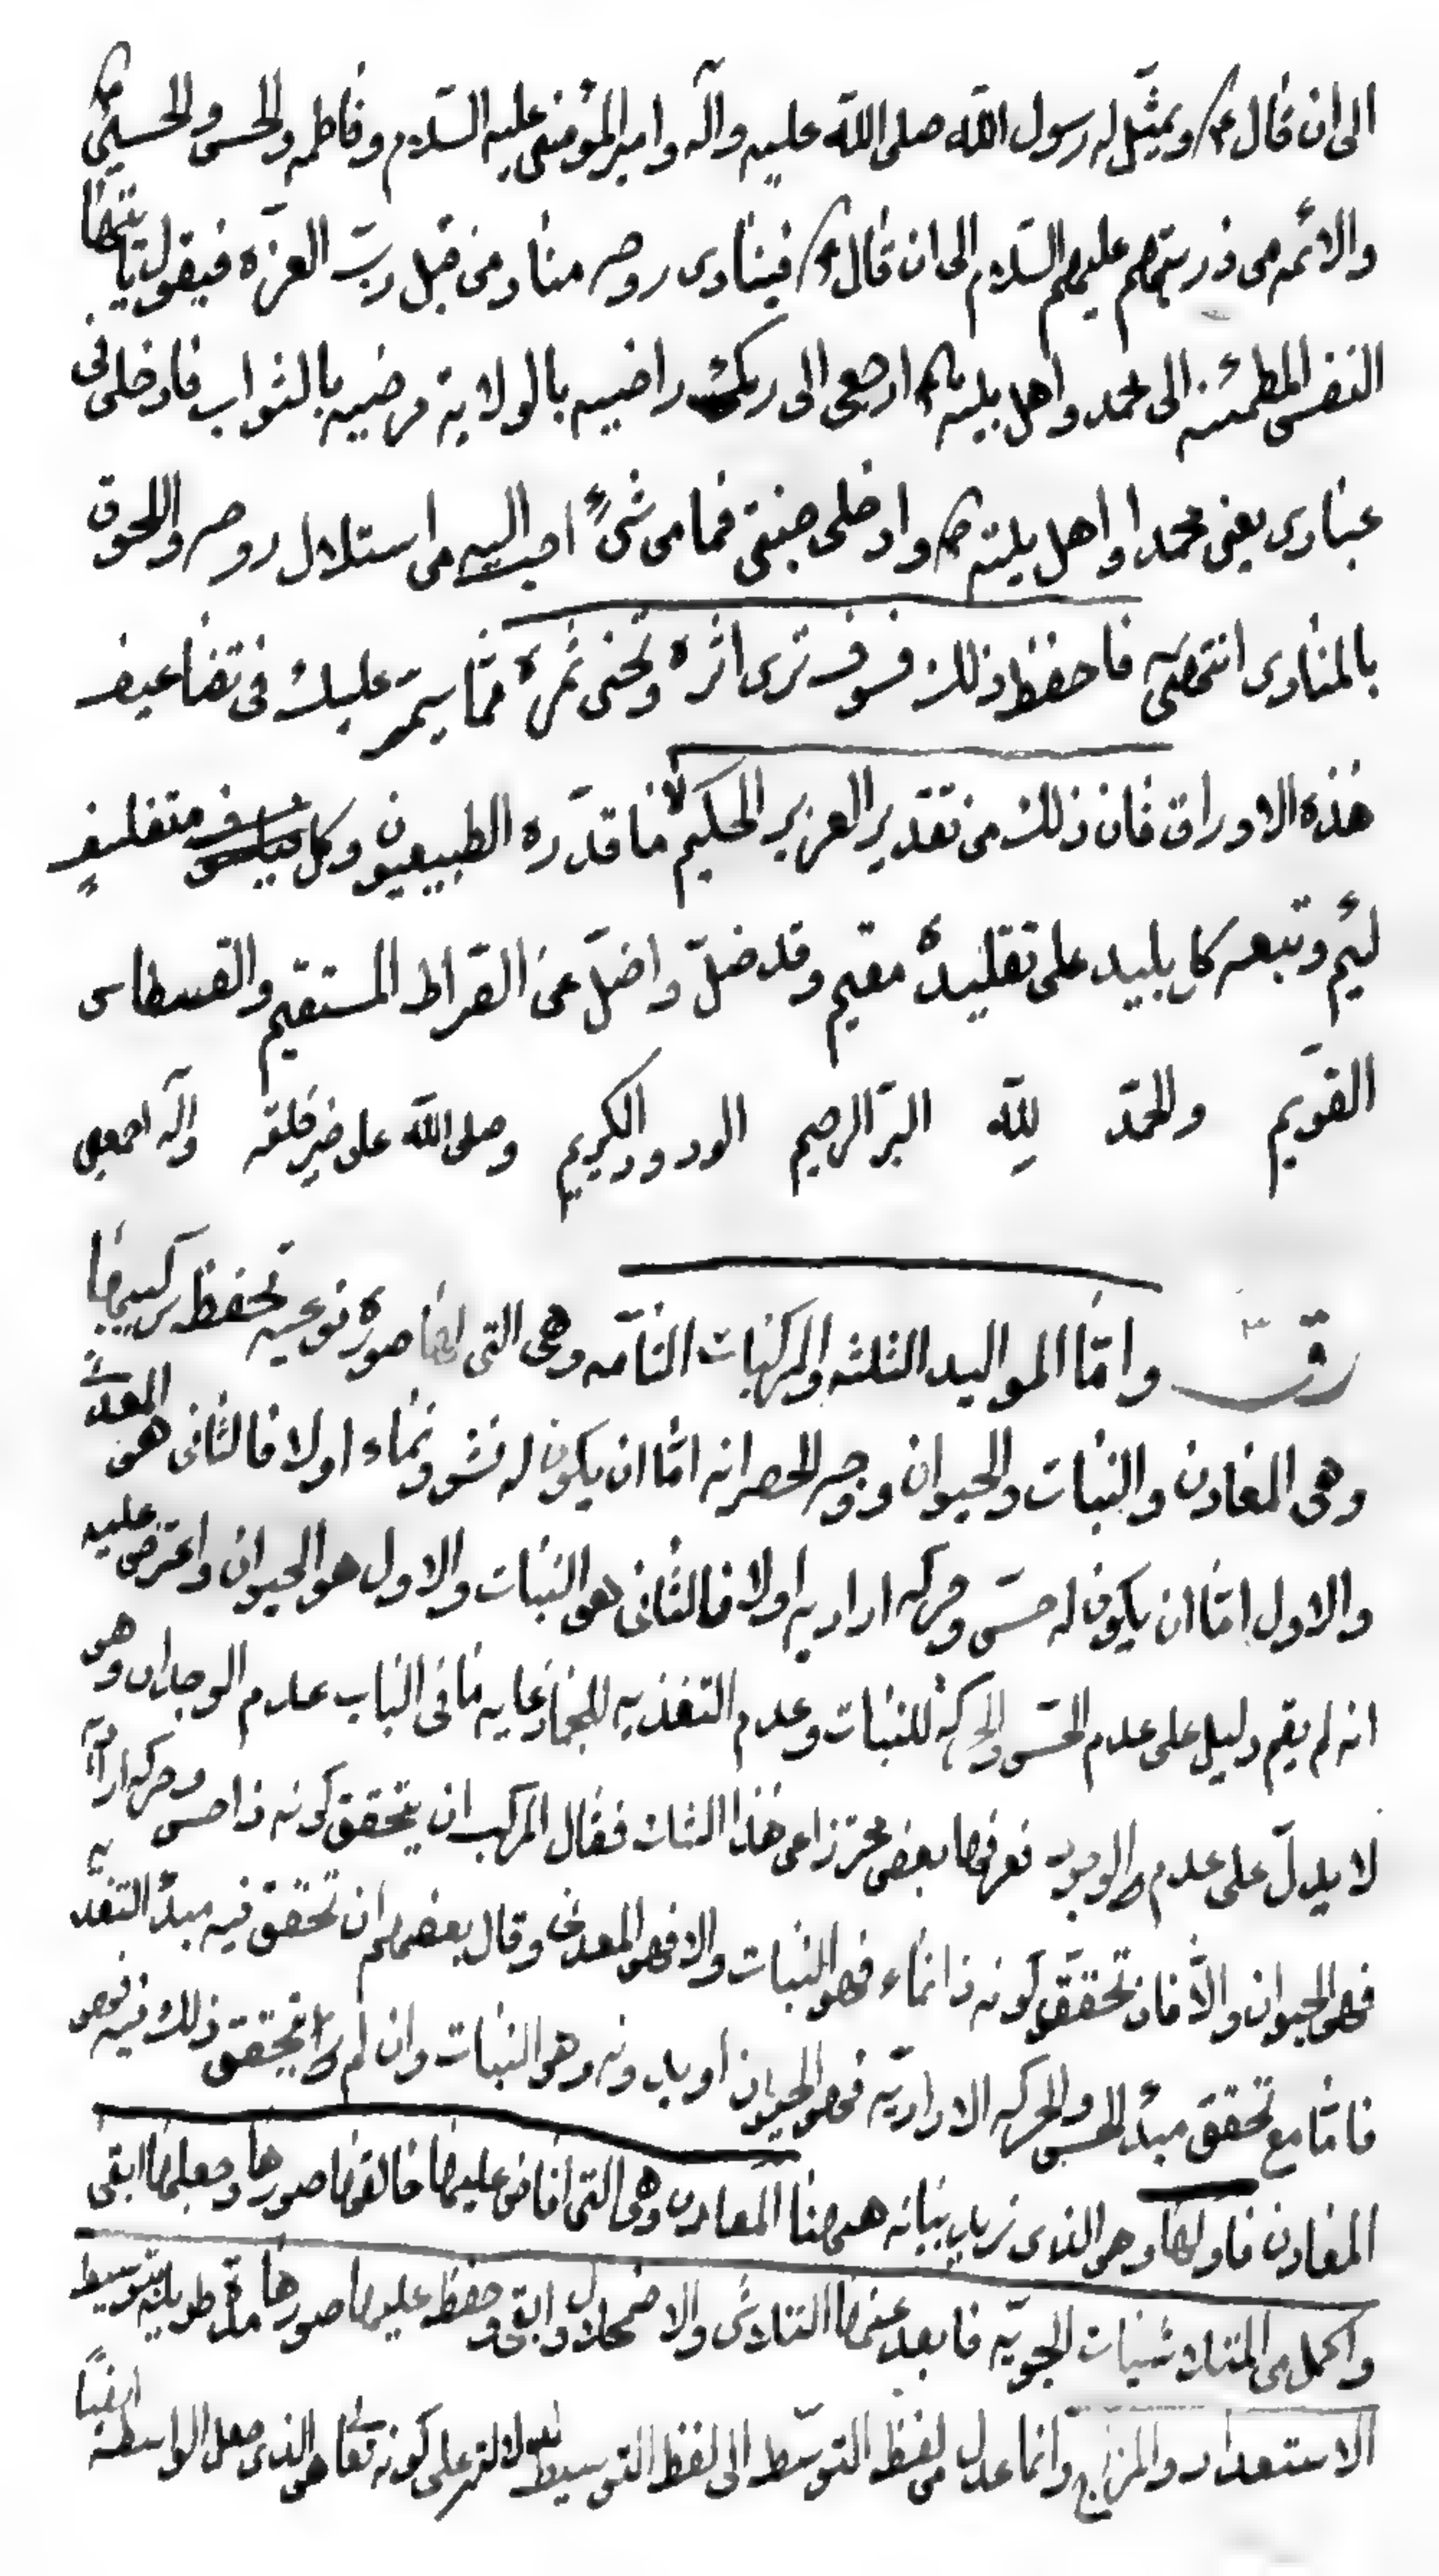 الى ان قال ع ويمثّل له رسول الله صلى الله عليه وآله وامير المؤمنين عليه السّلام وفاطمه والحسن والحسين
والائمه من ذريتهم عليهم السّلام الى ان قال ع فينادى روحه مناد من قبل ربّ العزّه فيقول يا ايتها
النفس المطمئنه الى محمد واهل بيته ارجعى الى ربك راضيه بالولاية مرضيه بالثواب فادخلى فى
عبادى يعنى محمدا واهل بيته وادخلى جنتى فما من شىء احب اليه من استلال روحه واللحوق
بالمنادى انتهى فاحفظ ذلك فسوف ترى اثره وتجنى ثمره ممّا يمرّ عليك فى تضاعيف
هذه الاوراق فان ذلك من تقدير العزيز الحكيم لا ما قدّره الطبيعيون وكل متفلسف
لئيم وتبعه كل بليد على تقليده مقيم وقد ضلّ واضلّ عن الصراط المستقيم والقسطاس
القويم والحمد للّه البرّ الرحيم الودود الكريم وصلى الله على خير خلقه وآله اجمعين
وامّا المواليد الثلثه والمركبات التامّه وهى التى لها صورة نوعيه تحفظ تركيبها
وهى المعادن والنبات والحيوان ووجه الحصر انه امّا ان يكون له نشو ونماء اولا فالثانى هو المعدن
والاول امّا ان يكون له حسّ وحركه اراديه اولا فالثانى هو النبات والاول هو الحيوان واعترض عليه
انه لم يقم دليل على عدم الحسّ والحركة للنبات وعدم التغذيه للجماد غايه ما فى الباب عدم الوجدان وهو
لا يدلّ على عدم الوجود فعرفها بعض محترزا عن هذا الشك فقال المركب ان يتحقق كونه ذا حس وحركه ارادية
فهو الحيوان والّا فان تحقق كونه ذا نماء فهو النبات والا فهو المعدن وقال بعضهم ان تحقق فيه مبدء التغذيه
فامّا مع تحقق مبدء الحس والحركه الاراديّه فهو الحيوان او بدونه وهو النبات وان لم يتحقق ذلك فيه فهو
المعادن فاولها وهو الذى نريد بيانه ههنا المعادن وهى التى افاض عليها خالقها صورها وجعلها ابقى
واكمل من المتلاشيات الجويّه فابعد عنها التلاشى والاضمحلال وابقى وحفظ عليها صورها مدة طويلة بتوسيط
الاستعداد والمزاج وانما عدل من لفظ التوسّط الى لفظ التوسيط لدلالته على كونه تعالى هو الذى جعل الواسطة ايضاً